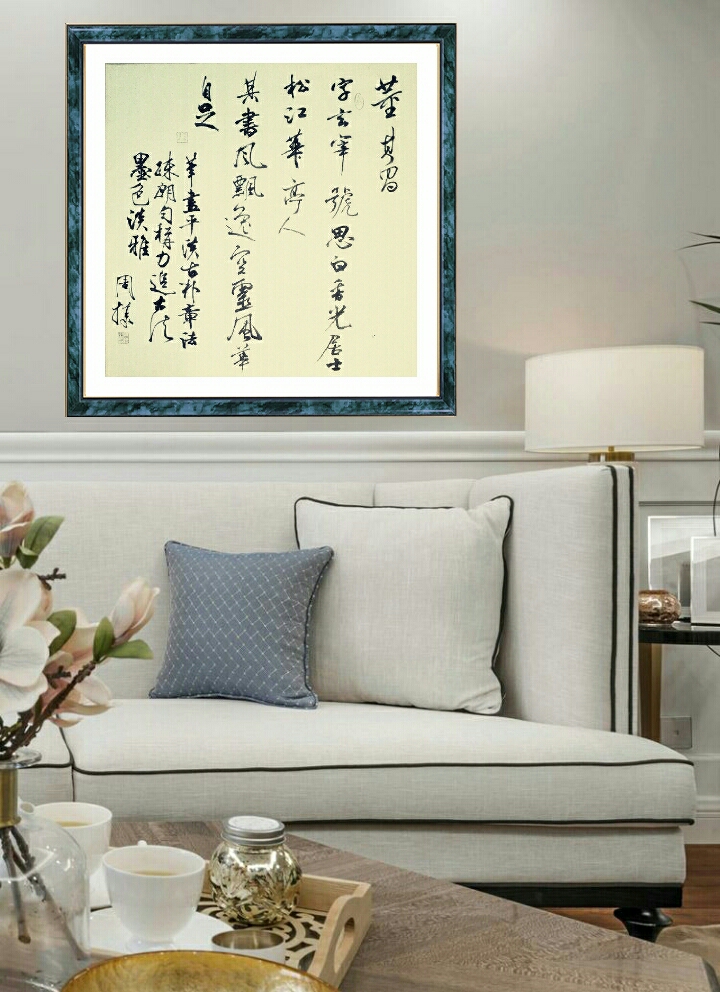 董其昌
字玄宰號思白香光居士
松江華亭人
其書風飄逸空靈風華
自足
筆畫平淡古朴章法
疎朗勻稱力追古法
墨色淡雅
周